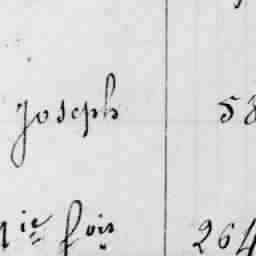 Joseph 58
ie fois 264